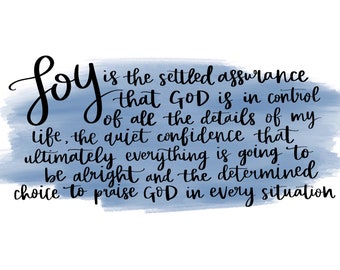 Joy is the settled assurance
that GOD is in control
of all the details of my
life, the quiet confidence that
ultimately everything is going to
be alright and the determined
choice to praise GOD in every situation